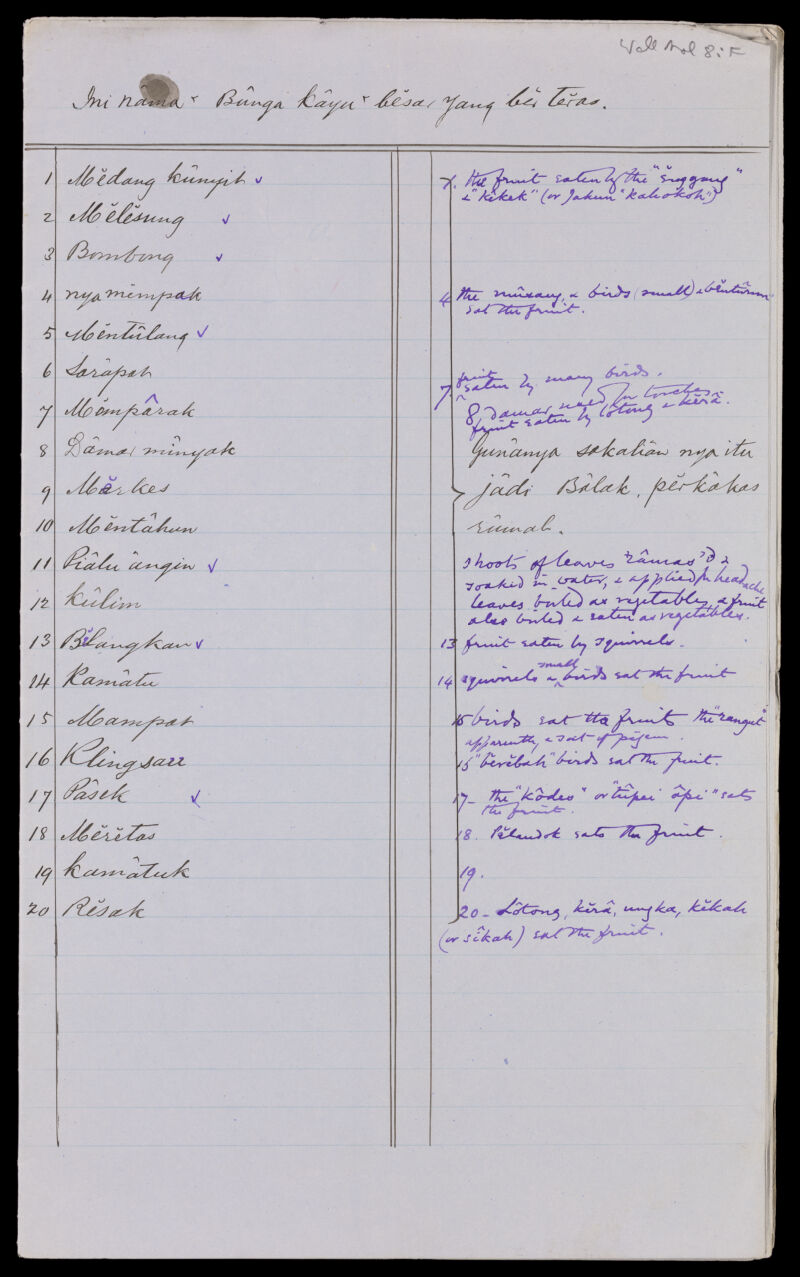 Well Mal 8: F
Ini nâma² Bûnga Kâyu² bĕsar yang bĕr tĕras.
1 Mĕdang kûnyit ✓
2 Mĕlĕsung ✓
3 Bombong ✓
4 nya mĕmpak
5 Mĕntûlang ✓
6 Sarâpat
7 Mĕmpârak
8 Dâmar mînyak
9 Mĕrkes
10 Mĕntâhun
11 Piâlu ângin ✓
12 kûlim
13 Bĕlangkan ✓
14 Kamâtu
15 Mampat
16 Klingsarr
17 Pâsek ✓
18 Mĕrĕtas
19 kamâtuk
20 Rĕsak
the fruit eaten by the "ĕnggang"
& "kîkek" (or Jakun "kahokoh")
4 the mûsang, & birds (small) & bĕntûrun
eat the fruit.
7. fruit eaten by many birds.
8. damar used for torches
fruit eaten by lôtong & kĕrâ.
Gunânya sakaliân nya itu
jâdi Bâlak, pĕrkâkas
rûmah.
shoots of leaves "râmas"'d &
soaked in water, & applied for headache
leaves boiled as vegetables, & fruit
also boiled & eaten as vegetables.
13 fruit eaten by squirrels.
14 squirrels & small birds eat the fruit
15 birds eat the fruits the "rangut"
apparently a sort of pigeon.
16 "bĕrĕbah" birds eat the fruit.
17- the "kôdeo" or "tûpai âpi" eats
the fruit.
18. Pĕlandok eats the fruit.
19.
20- Lôtong, kĕrâ, ungka, kĕkah
(or sîkah) eat the fruit.